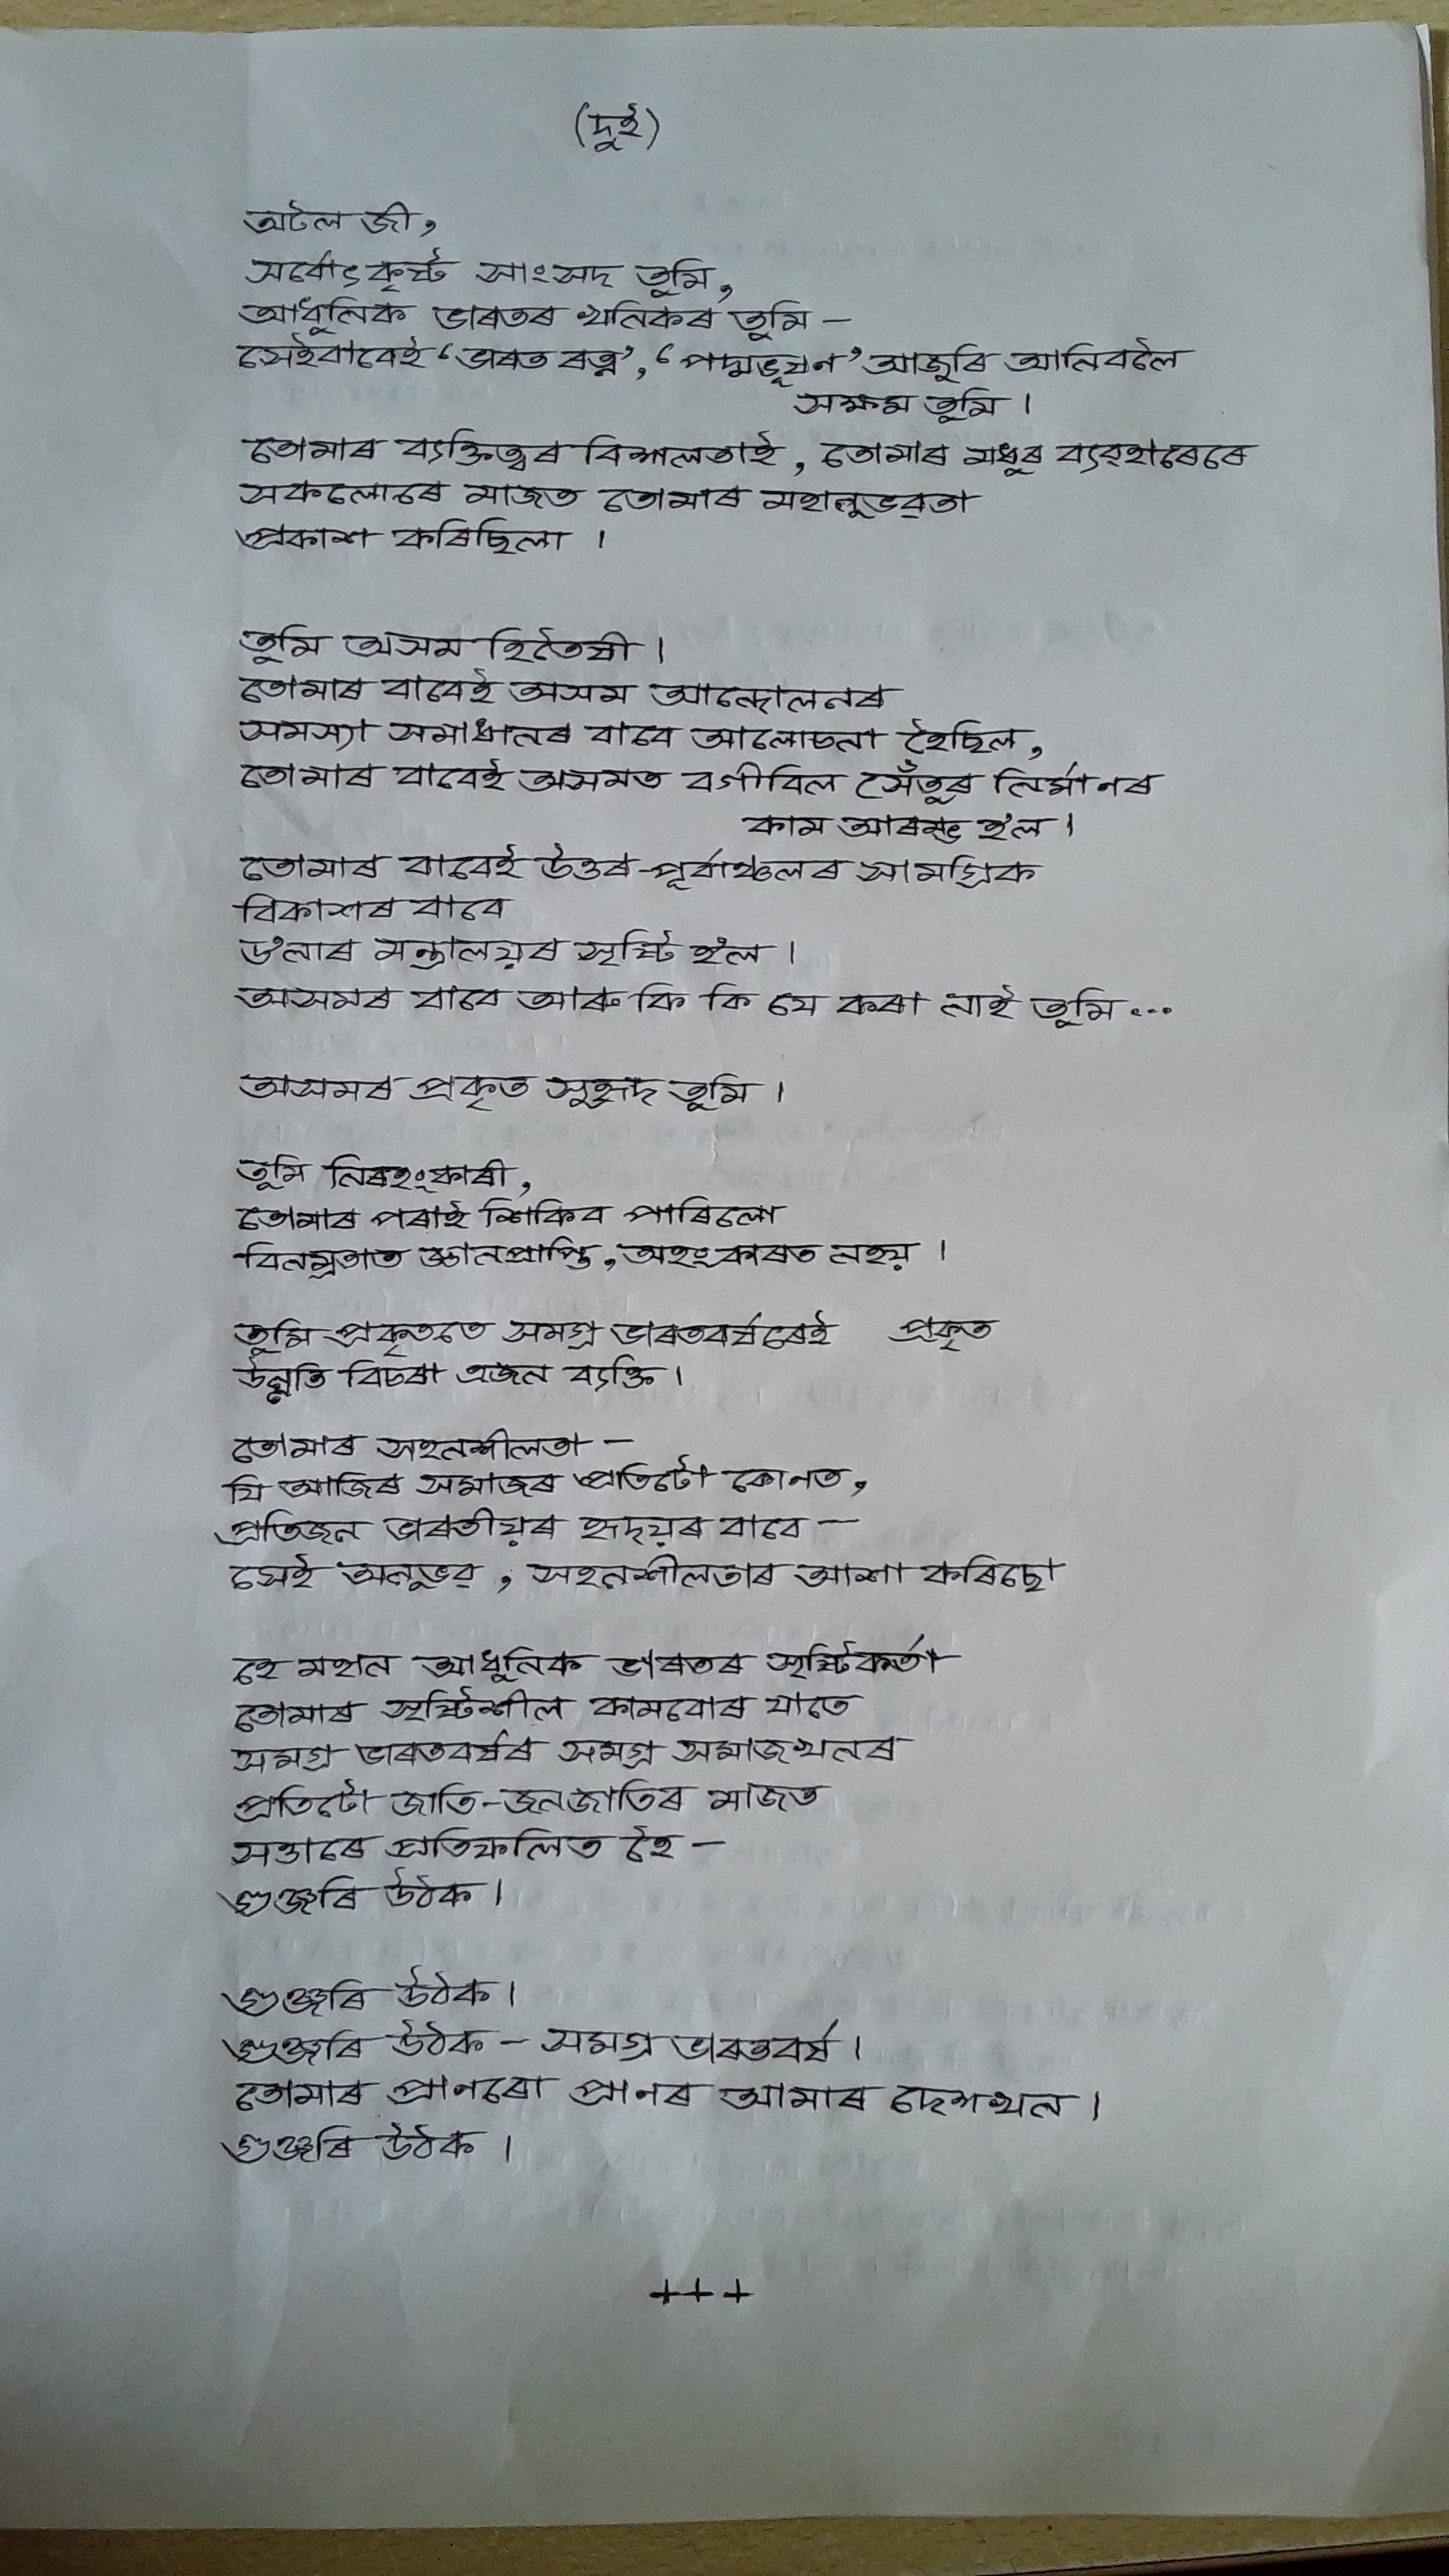 (দুই)
অটল জী,
সৰ্বোৎকৃষ্ট সাংসদ তুমি,
আধুনিক ভাৰতৰ খনিকৰ তুমি –
সেইবাবেই ‘ভাৰত ৰত্ন’, ‘পদ্মভূষণ’ আজুৰি আনিবলৈ
সক্ষম তুমি ।
তোমাৰ ব্যক্তিত্বৰ বিশালতাই, তোমাৰ মধুৰ ব্যৱহাৰেৰে
সকলোৰে মাজত তোমাৰ মহানুভৱতা
প্ৰকাশ কৰিছিলা ।
তুমি অসম হিতৈষী ।
তোমাৰ বাবেই অসম আন্দোলনৰ
সমস্যা সমাধানৰ বাবে আলোচনা হৈছিল,
তোমাৰ বাবেই অসমত বগীবিল সেঁতুৰ নিৰ্মাণৰ
কাম আৰম্ভ হ'ল ।
তোমাৰ বাবেই উত্তৰ-পূৰ্বাঞ্চলৰ সামগ্ৰিক
বিকাশৰ বাবে
ড'নাৰ মন্ত্ৰালয়ৰ সৃষ্টি হ'ল ।
অসমৰ বাবে আৰু কি কি যে কৰা নাই তুমি ...
অসমৰ প্ৰকৃত সুহৃদ তুমি ।
তুমি নিৰহংকাৰী,
তোমাৰ পৰাই শিকিব পাৰিলো
বিনম্ৰতাত জ্ঞানপ্ৰাপ্তি, অহংকাৰত নহয় ।
তুমি প্ৰকৃততে সমগ্ৰ ভাৰতবৰ্ষৰেই প্ৰকৃত
উন্নতি বিচৰা এজন ব্যক্তি ।
তোমাৰ সহনশীলতা –
যি আজিৰ সমাজৰ প্ৰতিটো কোণত,
প্ৰতিজন ভাৰতীয়ৰ হৃদয়ৰ বাবে –
সেই অনুভৱ, সহনশীলতাৰ আশা কৰিছো
হে মহান আধুনিক ভাৰতৰ সৃষ্টিকৰ্তা
তোমাৰ সৃষ্টিশীল কামবোৰ যাতে
সমগ্ৰ ভাৰতবৰ্ষৰ সমগ্ৰ সমাজখনৰ
প্ৰতিটো জাতি-জনজাতিৰ মাজত
সত্তাৰে প্ৰতিফলিত হৈ –
গুঞ্জৰি উঠক ।
গুঞ্জৰি উঠক ।
গুঞ্জৰি উঠক – সমগ্ৰ ভাৰতবৰ্ষ ।
তোমাৰ প্ৰাণৰো প্ৰাণৰ আমাৰ দেশখন ।
গুঞ্জৰি উঠক ।
+++